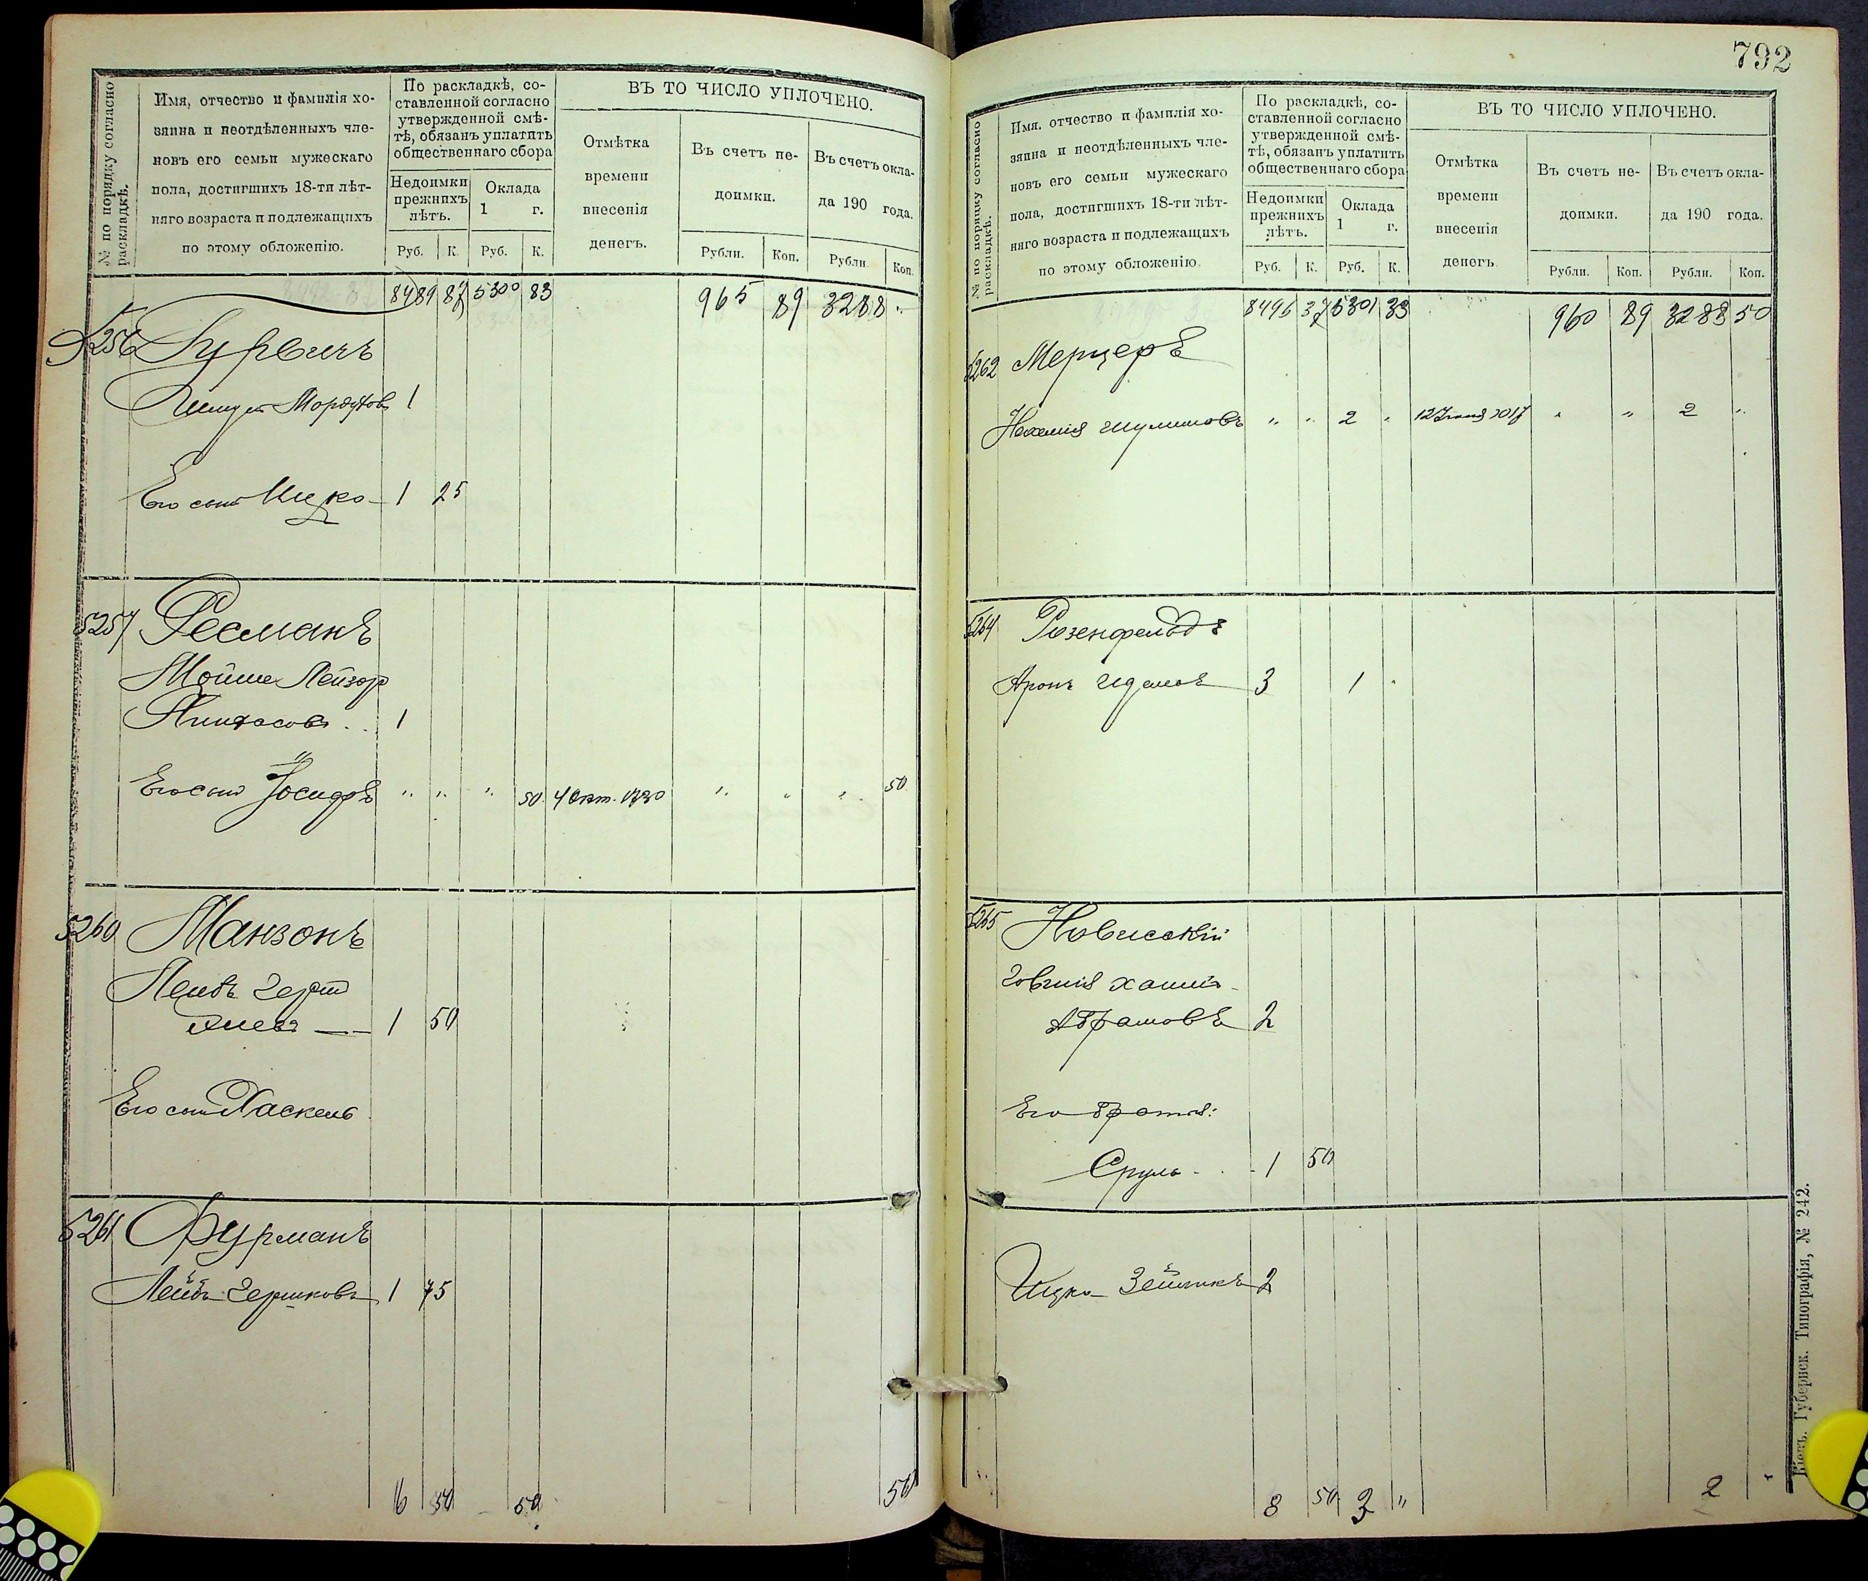 792
№ по порядку согласно раскладкѣ.
Имя, отчество и фамилія хо-
зяина и неотдѣленныхъ чле-
новъ его семьи мужескаго
пола, достигшихъ 18-ти лѣт-
няго возраста и подлежащихъ
по этому обложенію.
По раскладкѣ, со-
ставленной согласно
утвержденной смѣ-
тѣ, обязанъ уплатить
общественнаго сбора
Недоимки
прежнихъ
лѣтъ.
Оклада
1 г.
Руб. К. Руб. К.
ВЪ ТО ЧИСЛО УПЛОЧЕНО.
Отмѣтка
времени
внесенія
денегъ.
Въ счетъ не-
доимки.
Въ счетъ окла-
да 190 года.
Рубли. Коп. Рубли Коп.
8489 87 5300 83 965 89 3288 "
5256 Гурвичъ
Мордухов 1
Его сынъ Ицко 1 25
5257 Ресманъ
Мойше Лейзор
Пинхасовъ 1
Его сынъ Іосифъ " " " 50 4 Окт. " " " 50
5260 Манзонъ
Лейбъ Герш
1 50
Его сынъ Хаскель
5261 Фурманъ
Лейбъ Гершковъ 1 75
6 50 50 50
№ по порядку согласно раскладкѣ.
Имя, отчество и фамилія хо-
зяина и неотдѣленныхъ чле-
новъ его семьи мужескаго
пола, достигшихъ 18-ти лѣт-
няго возраста и подлежащихъ
по этому обложенію.
По раскладкѣ, со-
ставленной согласно
утвержденной смѣ-
тѣ, обязанъ уплатить
общественнаго сбора
Недоимки
прежнихъ
лѣтъ.
Оклада
1 г.
Руб. К. Руб. К.
ВЪ ТО ЧИСЛО УПЛОЧЕНО.
Отмѣтка
времени
внесенія
денегъ.
Въ счетъ не-
доимки.
Въ счетъ окла-
да 190 года.
Рубли. Коп. Рубли. Коп.
8496 37 5301 33 960 89 3288 50
5262 Мерцеръ
Нехемія Шулимовъ " " 2 " 12 Іюня " " 2 "
5264 Розенфельдъ
Аронъ 3 1
5265 Новисскій
Хаимъ
Абрамовъ 2
Его братья:
Сруль 1 50
Ицко Зейликъ 2
8 50 3 " 2
Кіевъ. Губернск. Типографія, № 242.